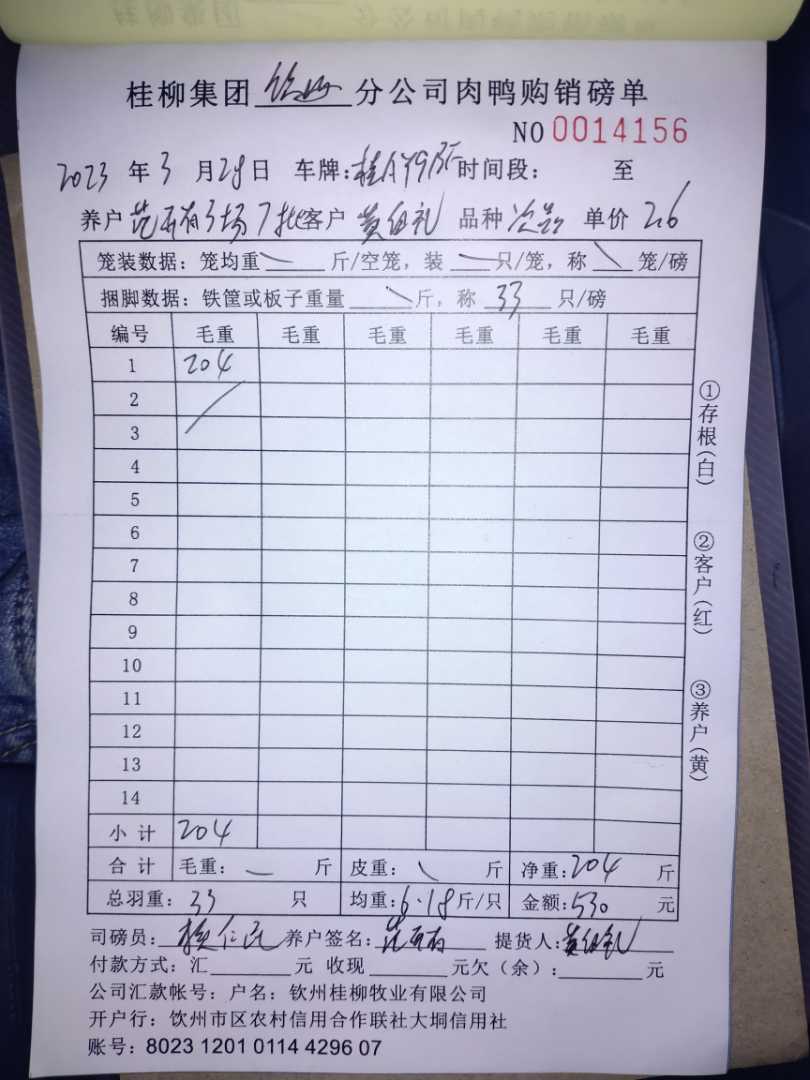 桂柳集团 钦州 分公司肉鸭购销磅单
NO 0014156
2023 年 3 月 28 日 车牌: 时间段: 至
养户 场 7批 客户 黄 礼 品种 次品 单价 2.6
笼装数据: 笼均重 斤/空笼, 装 只/笼, 称 笼/磅
捆脚数据: 铁筐或板子重量 斤, 称 33 只/磅
编号 毛重 毛重 毛重 毛重 毛重 毛重
1 204
2
3
4
5
6
7
8
9
10
11
12
13
14
小计 204
合计 毛重: 斤 皮重: 斤 净重: 204 斤
总羽重: 33 只 均重: 6.18 斤/只 金额: 530 元
司磅员: 养户签名: 提货人: 黄 礼
付款方式: 汇 元 收现 元欠(余): 元
公司汇款帐号: 户名: 钦州桂柳牧业有限公司
开户行: 饮州市区农村信用合作联社大垌信用社
账号: 8023 1201 0114 4296 07
①存根(白)
②客户(红)
③养户(黄)